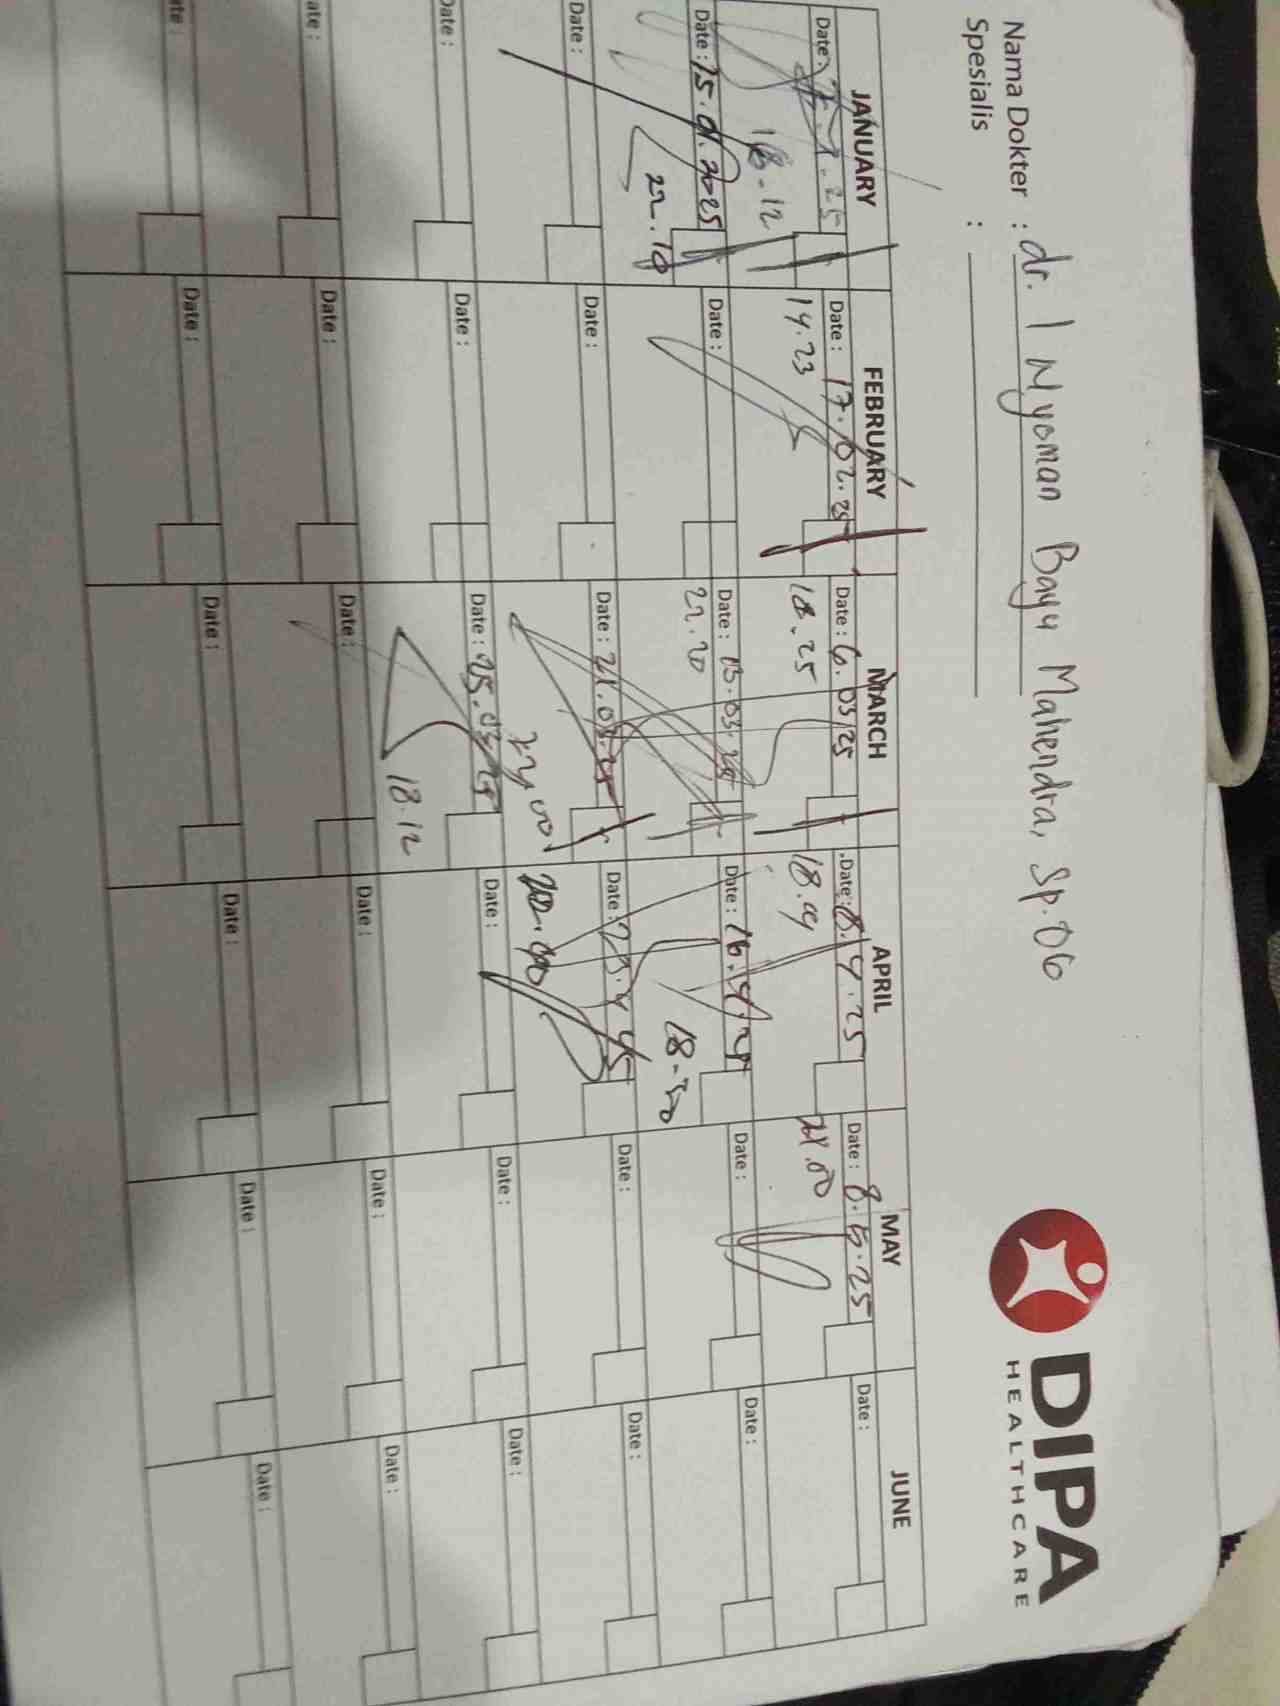 Nama Dokter : dr. I Nyoman Bayu Mahendra, Sp.OG
Spesialis :
DIPA
HEALTHCARE
JANUARY FEBRUARY MARCH APRIL MAY JUNE
Date : Date : 17.02.25 Date : 6.03.25 Date : 8.4.25 Date : 8.5.25 Date :
18.12 14.23 18.25 21.00
Date : 15.01.2025 Date : Date : 13.03.25 Date : 16.4.25 Date : Date :
22.10 22.20
Date : Date : Date : 21.03.25 Date : Date : Date :
Date : Date : Date : 25.03.25 Date : Date : Date :
18.12
Date : Date : Date : Date : Date : Date :
Date : Date : Date : Date : Date : Date :